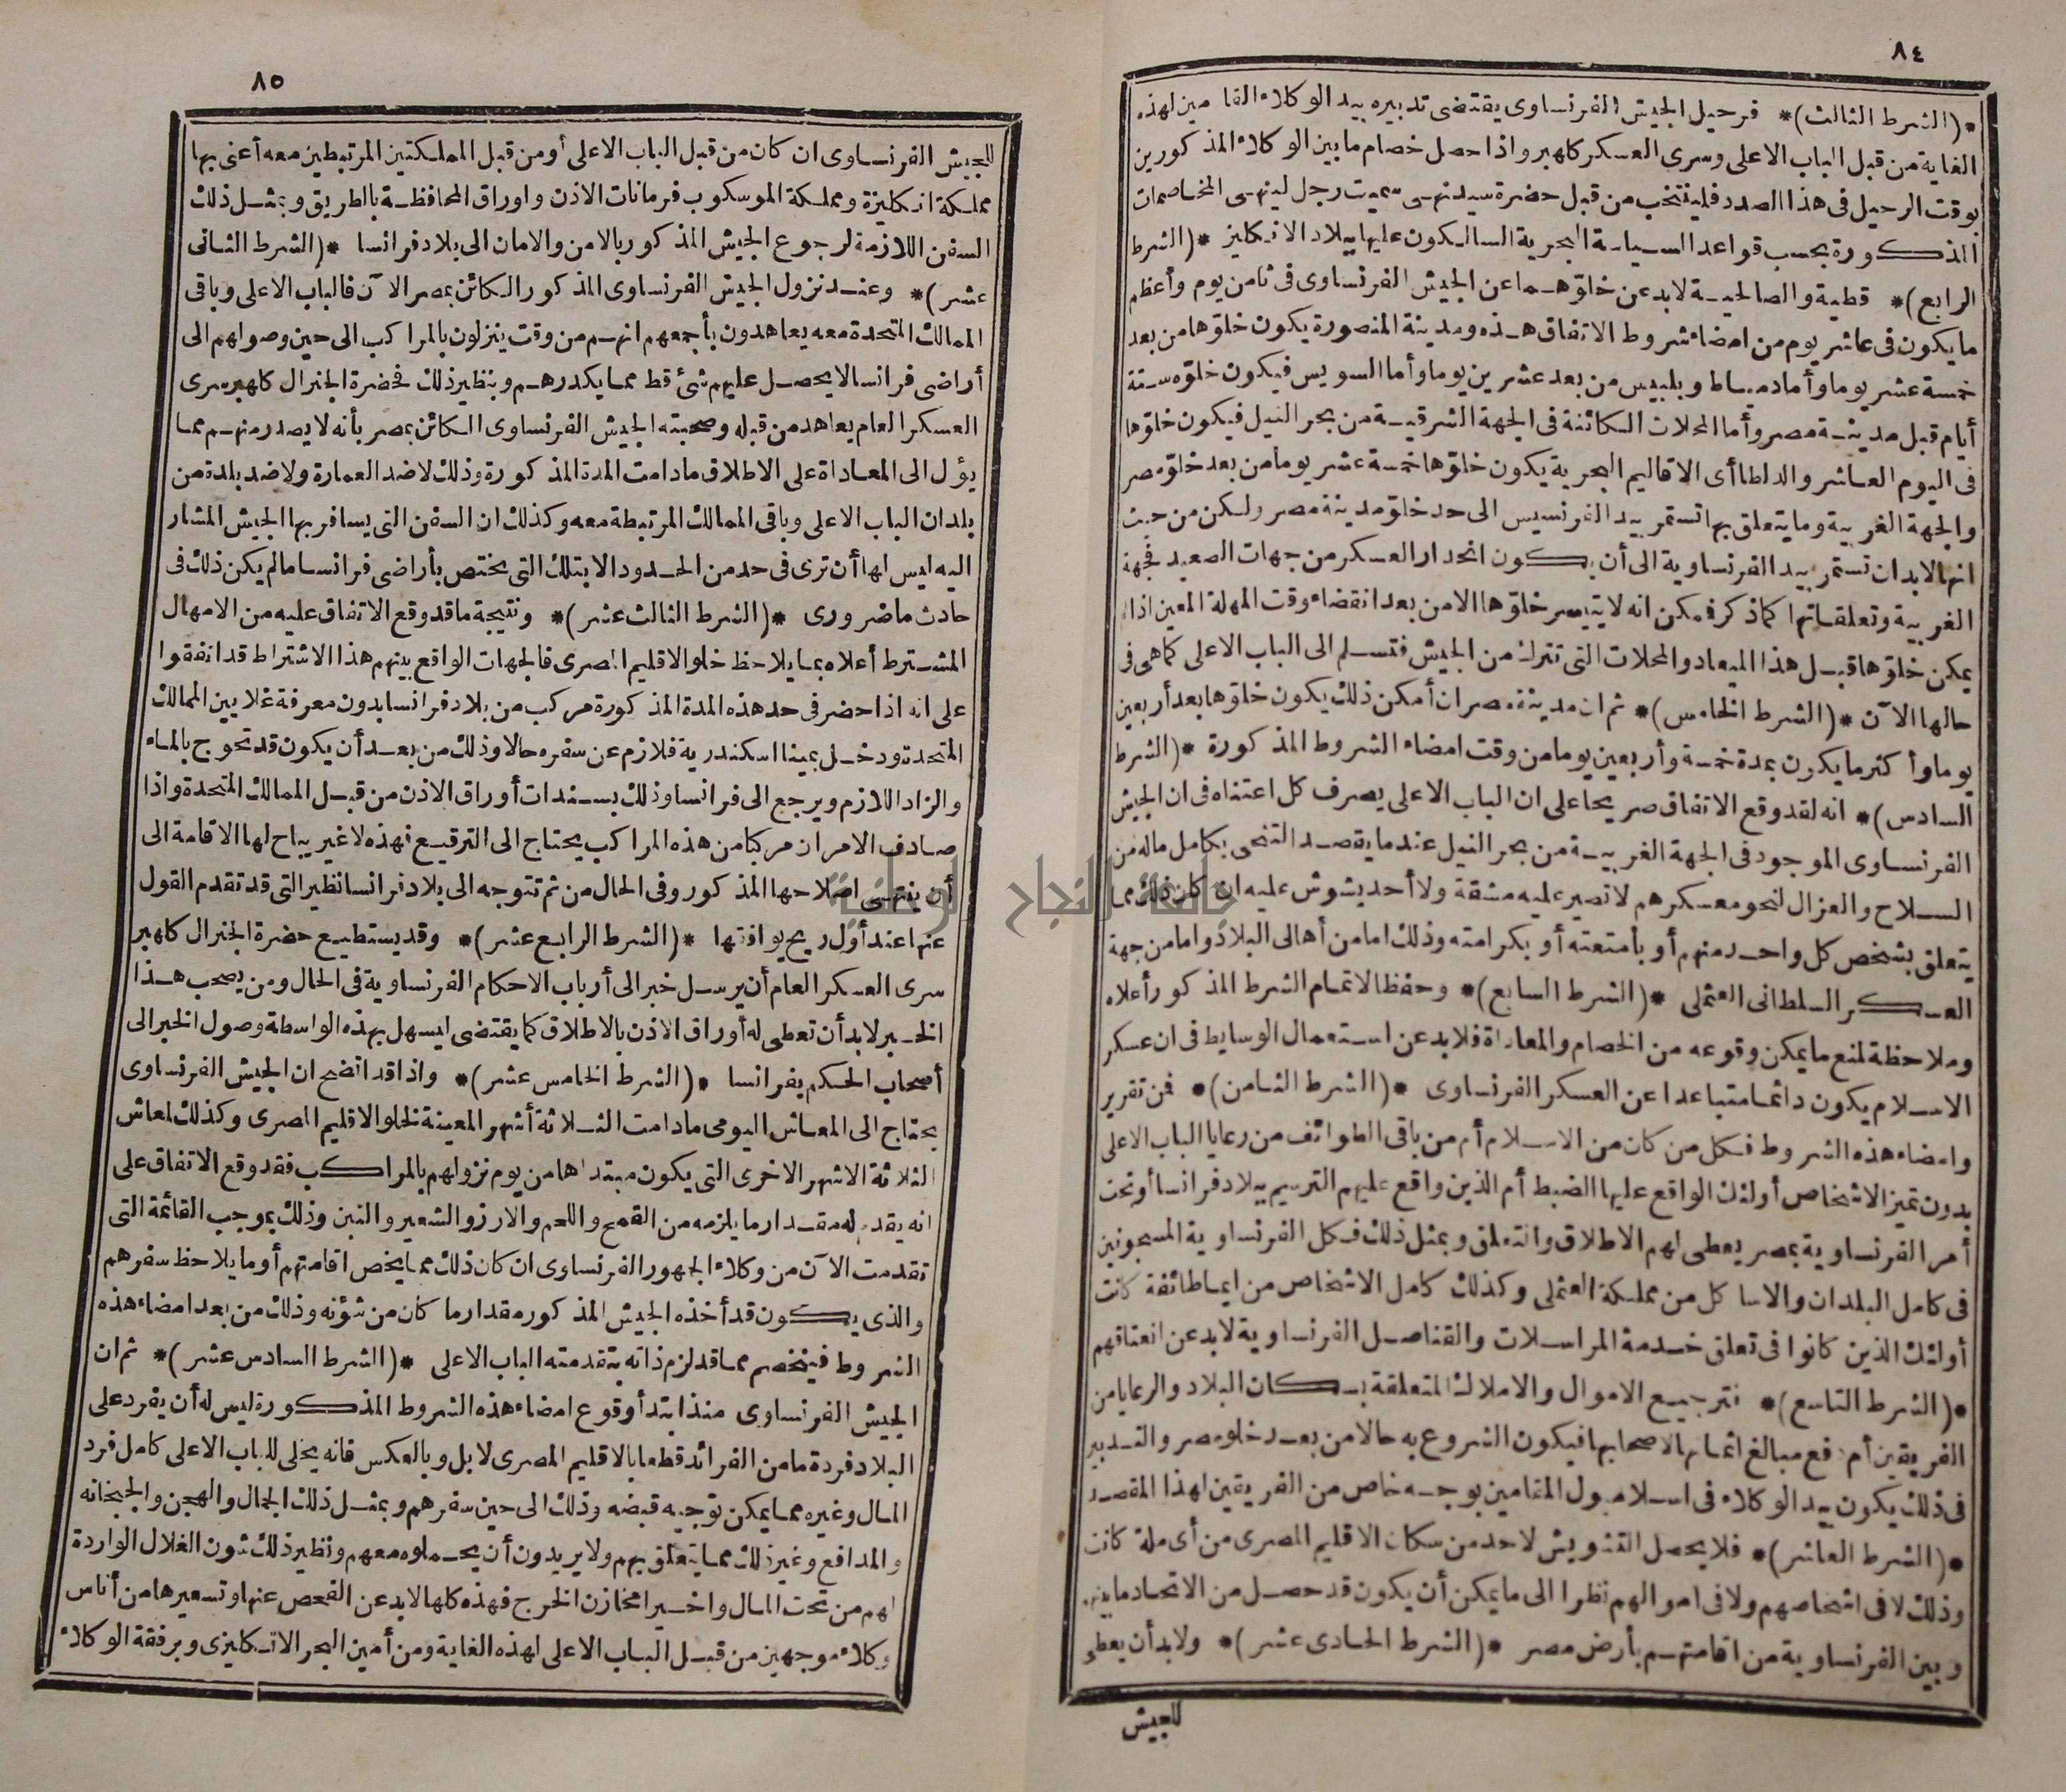 ٨٤
*(الشرط الثالث)* فرحيل الجيش الفرنساوى يقتضى تدبيره بيد الوكلاء القامين لهذه
الغاية من قبل الباب الاعلى وسرى العسكر كلهبر واذا حصل خصام ما بين الوكلاء المذكورين
بوقت الرحيل فى هذا الصدد فلينتخب من قبل حضرة سيدنهى سميت رجل لينهى المخاصمات
المذكورة بحسب قواعد السياسة البحرية السالكون عليها ببلاد الانكليز *(الشرط
الرابع)* قطية والصالحية لابد عن خلوّهما عن الجيش الفرنساوى فى ثامن يوم وأعظم
ما يكون فى عاشر يوم من امضاء شروط الاتفاق هذه ومدينة المنصورة يكون خلوّها من بعد
خمسة عشر يوما وأما دمياط وبلبيس من بعد عشرين يوما وأما السويس فيكون خلوّه ستة
أيام قبل مدينة مصر وأما المحلات الكائنة فى الجهة الشرقية من بحر النيل فيكون خلوّها
فى اليوم العاشر والدلطا أى الاقاليم البحرية يكون خلوّها خمسة عشر يوما من بعد خلوّ مصر
والجهة الغربية وما يتعلق بها تستمر بيد الفرنسيس الى حد خلوّ مدينة مصر ولكن من حيث
انها لابد ان تستمر بيد الفرنساوية الى أن يكون انحدار العسكر من جهات الصعيد فجهة
الغربية وتعلقاتها كما ذكر فمكن انه لا يتيسر خلوّها الا من بعد انقضاء وقت المهلة المعين اذا لم
يمكن خلوّها قبل هذا الميعاد والمحلات التى تترك من الجيش فتسلم الى الباب الاعلى كما هى فى
حالها الآن *(الشرط الخامس)* ثم ان مدينة مصر ان أمكن ذلك يكون خلوّها بعد أربعين
يوما وأكثر ما يكون بمدة خمسة وأربعين يوما من وقت امضاء الشروط المذكورة *(الشرط
السادس)* انه لقد وقع الاتفاق صريحا على ان الباب الاعلى يصرف كل اعتناه فى ان الجيش
الفرنساوى الموجود فى الجهة الغربية من بحر النيل عندما يقصد التنحى بكامل ماله من
السلاح والعزال لنحو معسكرهم لا تصير عليه مشقة ولا أحد يشوش عليه ان كان ذلك مما
يتعلق بشخص كل واحد منهم أو بأمتعته أو بكرامته وذلك اما من أهالى البلاد واما من جهة
العسكر السلطانى العثملى *(الشرط السابع)* وحفظا لاتمام الشرط المذكور أعلاه
وملاحظة لمنع ما يمكن وقوعه من الخصام والمعاداة فلابد عن استعمال الوسايط فى ان عسكر
الاسلام يكون دائما متباعدا عن العسكر الفرنساوى *(الشرط الثامن)* فمن تقرير
وامضاء هذه الشروط فكل من كان من الاسلام أم من باقى الطوائف من رعايا الباب الاعلى
بدون تميز الاشخاص أولئك الواقع عليها الضبط أم الذين واقع عليهم الترسيم ببلاد فرانسا أو تحت
أمر الفرنساوية بمصر يعطى لهم الاطلاق والتعلق وبمثل ذلك فكل الفرنساوية المسجونين
فى كامل البلدان والاساكل من مملكة العثملى وكذلك كامل الاشخاص من ايما طائفة كانت
أولئك الذين كانوا فى تعلق خدمة المراسلات والقناصل الفرنساوية لابد عن انعتاقهم
*(الشرط التاسع)* فترجيع الاموال والاملاك المتعلقة بسكان البلاد والرعايا من
الفريقين أم دفع مبالغ اثمانها لاصحابها فيكون الشروع به حالا من بعد خلو مصر والتدبير
فى ذلك يكون بيد الوكلاء فى اسلامبول المقامين بوجه خاص من الفريقين لهذا المقصد
*(الشرط العاشر)* فلا يحصل التشويش لاحد من سكان الاقليم المصرى من أى ملة كانت
وذلك لا فى اشخاصهم ولا فى اموالهم نظرا الى ما يمكن أن يكون قد حصل من الاتحاد ما بينهم
وبين الفرنساوية من اقامتهم بأرض مصر *(الشرط الحادى عشر)* ولابد أن يعطى
للجيش
٨٥
للجيش الفرنساوى ان كان من قبل الباب الاعلى أو من قبل المملكتين المرتبطين معه أعنى بها
مملكة انكليزة ومملكة الموسكوب فرمانات الاذن واوراق المحافظة بالطريق وبمثل ذلك
السفن اللازمة لرجوع الجيش المذكور بالامن والامان الى بلاد فرانسا *(الشرط الثانى
عشر)* وعند نزول الجيش الفرنساوى المذكور الكائن بمصر الآن فالباب الاعلى وباقى
الممالك المتحدة معه يعاهدون بأجمعهم انهم من وقت ينزلون بالمراكب الى حين وصولهم الى
أراضى فرانسا لا يحصل عليهم شئ قط مما يكدرهم ونظير ذلك فحضرة الجنرال كلهبر سرى
العسكر العام يعاهد من قبله وصحبته الجيش الفرنساوى الكائن بمصر بأنه لا يصدر منهم مما
يؤل الى المعاداة على الاطلاق مادامت المدة المذكورة وذلك لا ضد العمارة ولا ضد بلدة من
بلدان الباب الاعلى وباقى الممالك المرتبطة معه وكذلك ان السفن التى يسافر بها الجيش المشار
اليه ليس لها أن ترى فى حد من الحدود الا بتلك التى يختص بأراضى فرانسا مالم يكن ذلك فى
حادث ما ضرورى *(الشرط الثالث عشر)* ونتيجة ما قد وقع الاتفاق عليه من الامهال
المشترط أعلاه بما يلاحظ خلو الاقليم المصرى فالجهات الواقع بينهم هذا الاشتراط قد اتفقوا
على انه اذا حضر فى حد هذه المدة المذكورة مركب من بلاد فرانسا بدون معرفة غلايين الممالك
المتحدة ودخل بمينا اسكندرية فلازم عن سفره حالا وذلك من بعد أن يكون قد تحوج بالماء
والزاد اللازم ويرجع الى فرانسا وذلك بسندات أوراق الاذن من قبل الممالك المتحدة واذا
صادف الامر ان مركبا من هذه المراكب يحتاج الى الترقيع فهذه لا غير يباح لها الاقامة الى
أن ينتهى اصلاحها المذكور وفى الحال من ثم تتوجه الى بلاد فرانسا نظير التى قد تقدم القول
عنها عند أول ريح يوافقها *(الشرط الرابع عشر)* وقد يستطيع حضرة الجنرال كلهبر
سرى العسكر العام أن يرسل خبر الى أرباب الاحكام الفرنساوية فى الحال ومن يصحب هذا
الخبر لابد أن تعطى له أوراق الاذن بالاطلاق كما يقتضى ليسهل بهذه الواسطة وصول الخبر الى
أصحاب الحكم بفرانسا *(الشرط الخامس عشر)* واذا قد اتضح ان الجيش الفرنساوى
يحتاج الى المعاش اليومى مادامت الثلاثة أشهر المعينة لخلو الاقليم المصرى وكذلك لمعاش
الثلاثة الاشهر الاخرى التى يكون مبتداها من يوم نزولهم بالمراكب فقد وقع الاتفاق على
انه يقدم له مقدار ما يلزمه من القمح واللحم والارز والشعير والتبن وذلك بموجب القائمة التى
تقدمت الآن من وكلاء الجمهور الفرنساوى ان كان ذلك مما يخص اقامتهم أو ما يلاحظ سفرهم
والذى يكون قد أخذه الجيش المذكور مقدار ما كان من شؤنه وذلك من بعد امضاء هذه
الشروط فينخصم مما قد لزم ذاته بتقدمته الباب الاعلى *(الشرط السادس عشر)* ثم ان
الجيش الفرنساوى منذ ابتدأ وقوع امضاء هذه الشروط المذكورة ليس له أن يفرد على
البلاد فردة ما من الفرائد قطعا بالاقليم المصرى لا بل وبالعكس فانه يخلى للباب الاعلى كامل فرد
المال وغيره مما يمكن توجيه قبضه وذلك الى حين سفرهم وبمثل ذلك الجمال والهجن والجبخانه
والمدافع وغير ذلك مما يتعلق بهم ولا يريدون أن يحملوه معهم ونظير ذلك شون الغلال الواردة
لهم من تحت المال واخيرا مخازن الخرج فهذه كلها لابد عن الفحص عنها وتسعيرها من أناس
وكلاء موجهين من قبل الباب الاعلى لهذه الغاية ومن أمين البحر الانكليزى وبرفقة الوكلاء
جامعة النجاح الوطنية